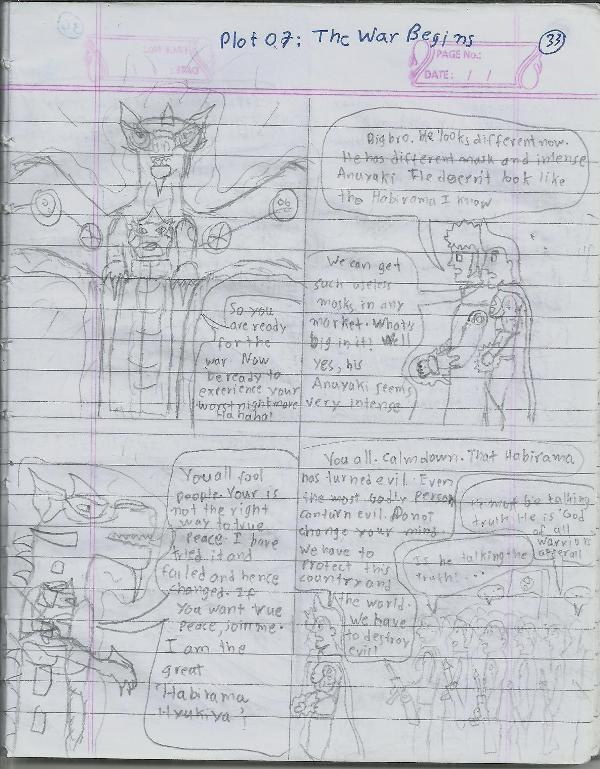 Plot 07: The War Begins
33
PAGE No.:
DATE: / /
Big bro. He looks different now.
He has different mask and intense
Anuyaki He doesn't look like
the Habirama I know
We can get
such useless
masks in any
market. What's
big in it! Well
yes, his
Anuyaki seems
very intense
So you
are ready
for the
war Now
be ready to
experience your
worst nightmare
Hahaha!
06
You all fool
people. Your is
not the right
way to true
peace. I have
tried it and
failed and hence
changed. If
you want true
peace, join me.
I am the
great
'Habirama
Hyukiya'
You all. Calm down. That Habirama
has turned evil. Even
the most Godly person
can turn evil. Do not
change your mind
We have to
protect this
country and
the world.
We have
to destroy
evil!
He must be talking
truth. He is 'God
of all
warrior
after all
Is he talking the
truth! ...